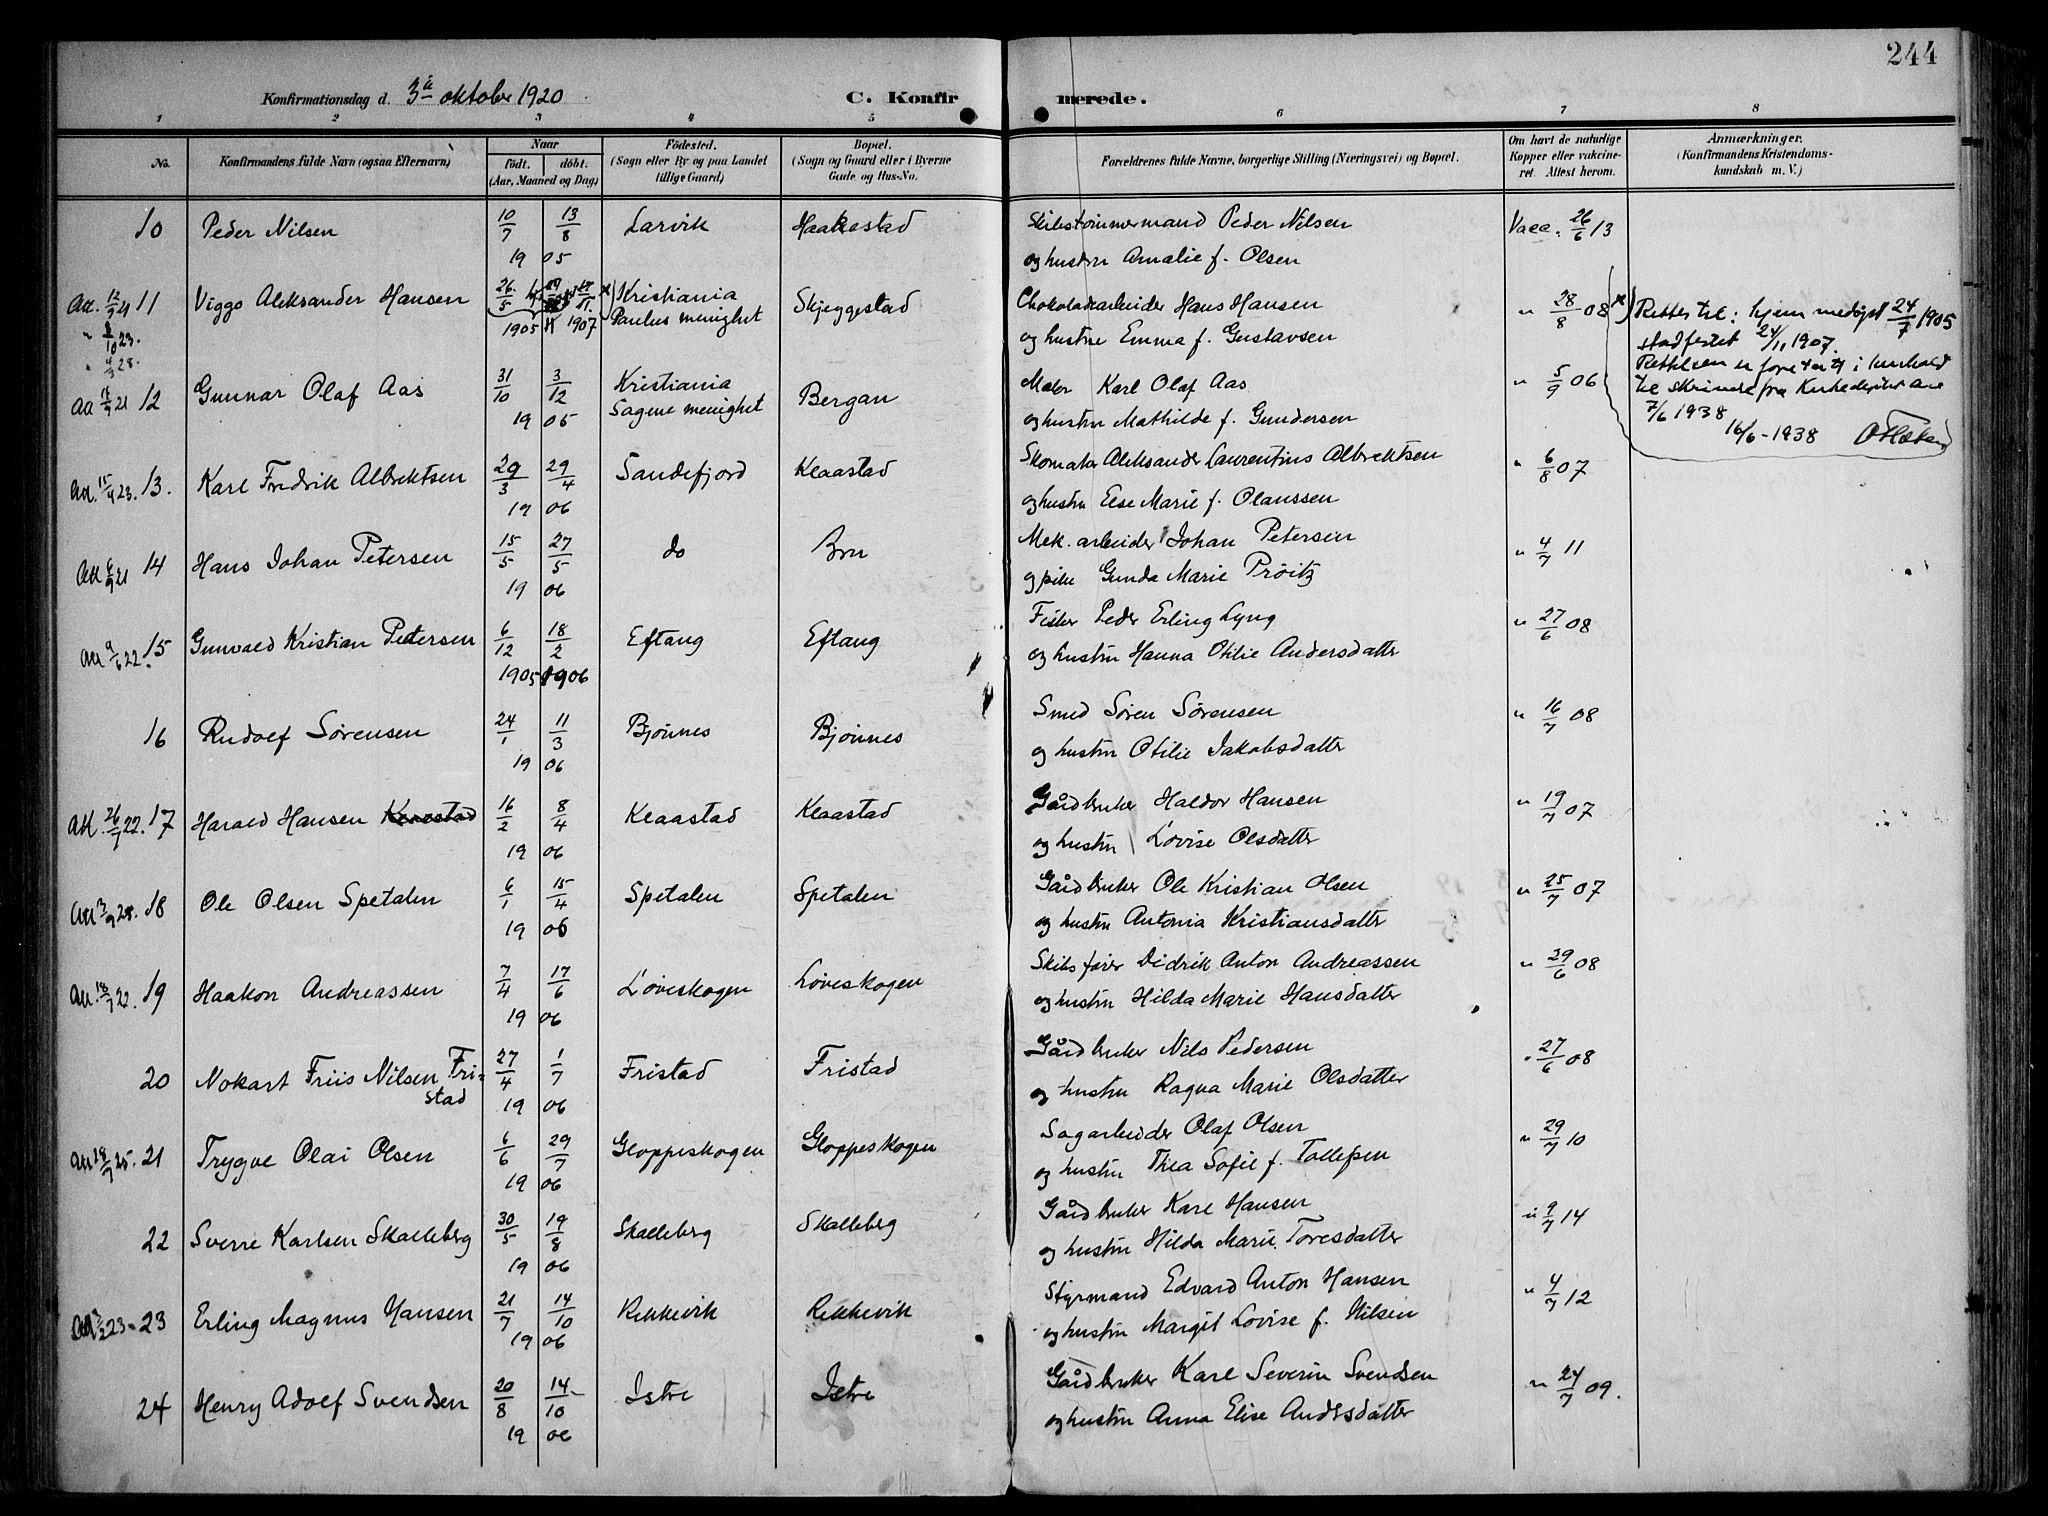 244
Konfirmationsdag d. 3die oktober 1920 C. Konfirmerede.
1 2 3 4 5 6 7 8
No. Konfirmandens fulde Navn (ogsaa Efternavn) Naar födt. döbt. (Aar, Maaned og Dag) Födested. (Sogn eller By og paa Landet tillige Gaard) Bopæl. (Sogn og Gaard eller i Byerne Gade og Hus-No. Forældrenes fulde Navne, borgerlige Stilling (Næringsvei) og Bopæl. Om havt de naturlige Kopper eller vakcineret. Attest herom. Anmærkninger. (Konfirmandens Kristendomskundskab m. V.)
10 Peder Nilsen 10/7 13/8 Larvik Haakestad Skibstømmermand Peder Nilsen Vacc. 26/6 13
19 05 og hustru Amalie f. Olsen
11 Viggo Aleksander Hansen 26/5 Kristiania Skjeggestad Chokoladearbeider Hans Hansen " 28/8 08
1905 1907 Paulus menighet og hustru Emma f. Gustavsen
Rettes til: hjemmedøpt 24/7 1905
stadfestet 24/11 1907.
Rettelsen er foretatt i henhold
til skrivelse fra Kirkedepartementet
7/6 1938
16/6-1938
Aa 12 Gunnar Olaf Aas 31/10 3/12 Kristiania Bergan Maler Karl Olaf Aas " 5/9 06
19 05 Sagene menighet og hustru Mathilde f. Gundersen
Att. 15/4 23. 13. Karl Fredrik Albrektsen 29/3 29/4 Sandefjord Klaastad Skomaker Aleksander Laurentius Albrektsen " 6/8 07
19 06 og hustru Else Marie f. Olaussen
Att 6/9 21 14 Hans Johan Petersen 15/5 27/5 do Bru Mek. arbeider Johan Petersen " 4/7 11
19 06 og pike Gunda Marie Prøitz
Att 9/6 22. 15 Gunvald Kristian Pedersen 6/12 18/2 Eftang Eftang Fisker Peder Erling Lyng " 27/6 08
1905 1906 og hustru Hanna Otilie Andersdatter
16 Rudolf Sørensen 24/1 11/3 Bjønnes Bjønnes Smed Søren Sørensen " 16/7 08
19 06 og hustru Otilie Jakobsdatter
Att. 26/7 22. 17 Harald Hansen Klaastad 16/2 8/4 Klaastad Klaastad Gårdbruker Haldor Hansen " 19/7 07
19 06 og hustru Lovise Olsdatter
18 Ole Olsen Spetalen 6/1 15/4 Spetalen Spetalen Gårdbruker Ole Kristian Olsen " 25/7 07
19 06 og hustru Antonia Kristiansdatter
Att. 18/7 22. 19 Haakon Andreassen 7/4 17/6 Løveskogen Løveskogen Skibsfører Didrik Anton Andreassen " 29/6 08
19 06 og hustru Hilda Marie Hansdatter
20 Nokart Friis Nilsen Fri- 27/4 1/7 Fristad Fristad Gårdbruker Nils Pedersen " 27/6 08
stad 19 06 og hustru Ragna Marie Olsdatter
Att 18/7 25. 21 Trygve Olai Olsen 6/6 29/7 Gloppeskogen Gloppeskogen Sagarbeider Olaf Olsen " 29/7 10
19 06 og hustru Thea Sofie f. Tollefsen
22 Sverre Karlsen Skalleberg 30/5 19/8 Skalleberg Skalleberg Gårdbruker Karl Hansen " 9/7 14
19 06 og hustru Hilda Marie Toresdatter
23 Erling Magnus Hansen 21/7 14/10 Rekkevik Rekkevik Styrmand Edvard Anton Hansen " 4/7 12
19 06 og hustru Margit Lovise f. Nilsen
24 Henry Adolf Svendsen 20/8 14/10 Istre Istre Gårdbruker Karl Severin Svendsen " 24/7 09.
19 06 og hustru Anna Elise Andersdatter